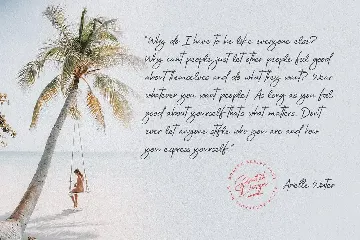 "Why do I have to be like everyone else?
Why can't people just let other people feel good
about themselves and do what they want? Wear
whatever you want people! As long as you feel
good about yourself thats what matters. Don't
ever let anyone stifle who you are and how
you express yourself."
Arielle Winter